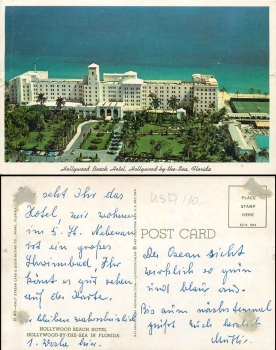 Hollywood Beach Hotel, Hollywood-by-the-Sea, Florida
seht Ihr das
Hotel, wir wohnen
im 5. St. Nebenan
ist ein großes
Schwimmbad, Ihr
könnt es gut sehen
auf der Karte.
bleiben wahrscheinlich
HOLLYWOOD BEACH HOTEL
HOLLYWOOD-BY-THE-SEA IN FLORIDA
1 Woche hier.
USA
POST CARD
PLACE
STAMP
HERE
Der Ozean sieht
wirklich so grün
und blau aus.
Bis zum nächstenmal
grüßt Dich herzlich
Mutti.